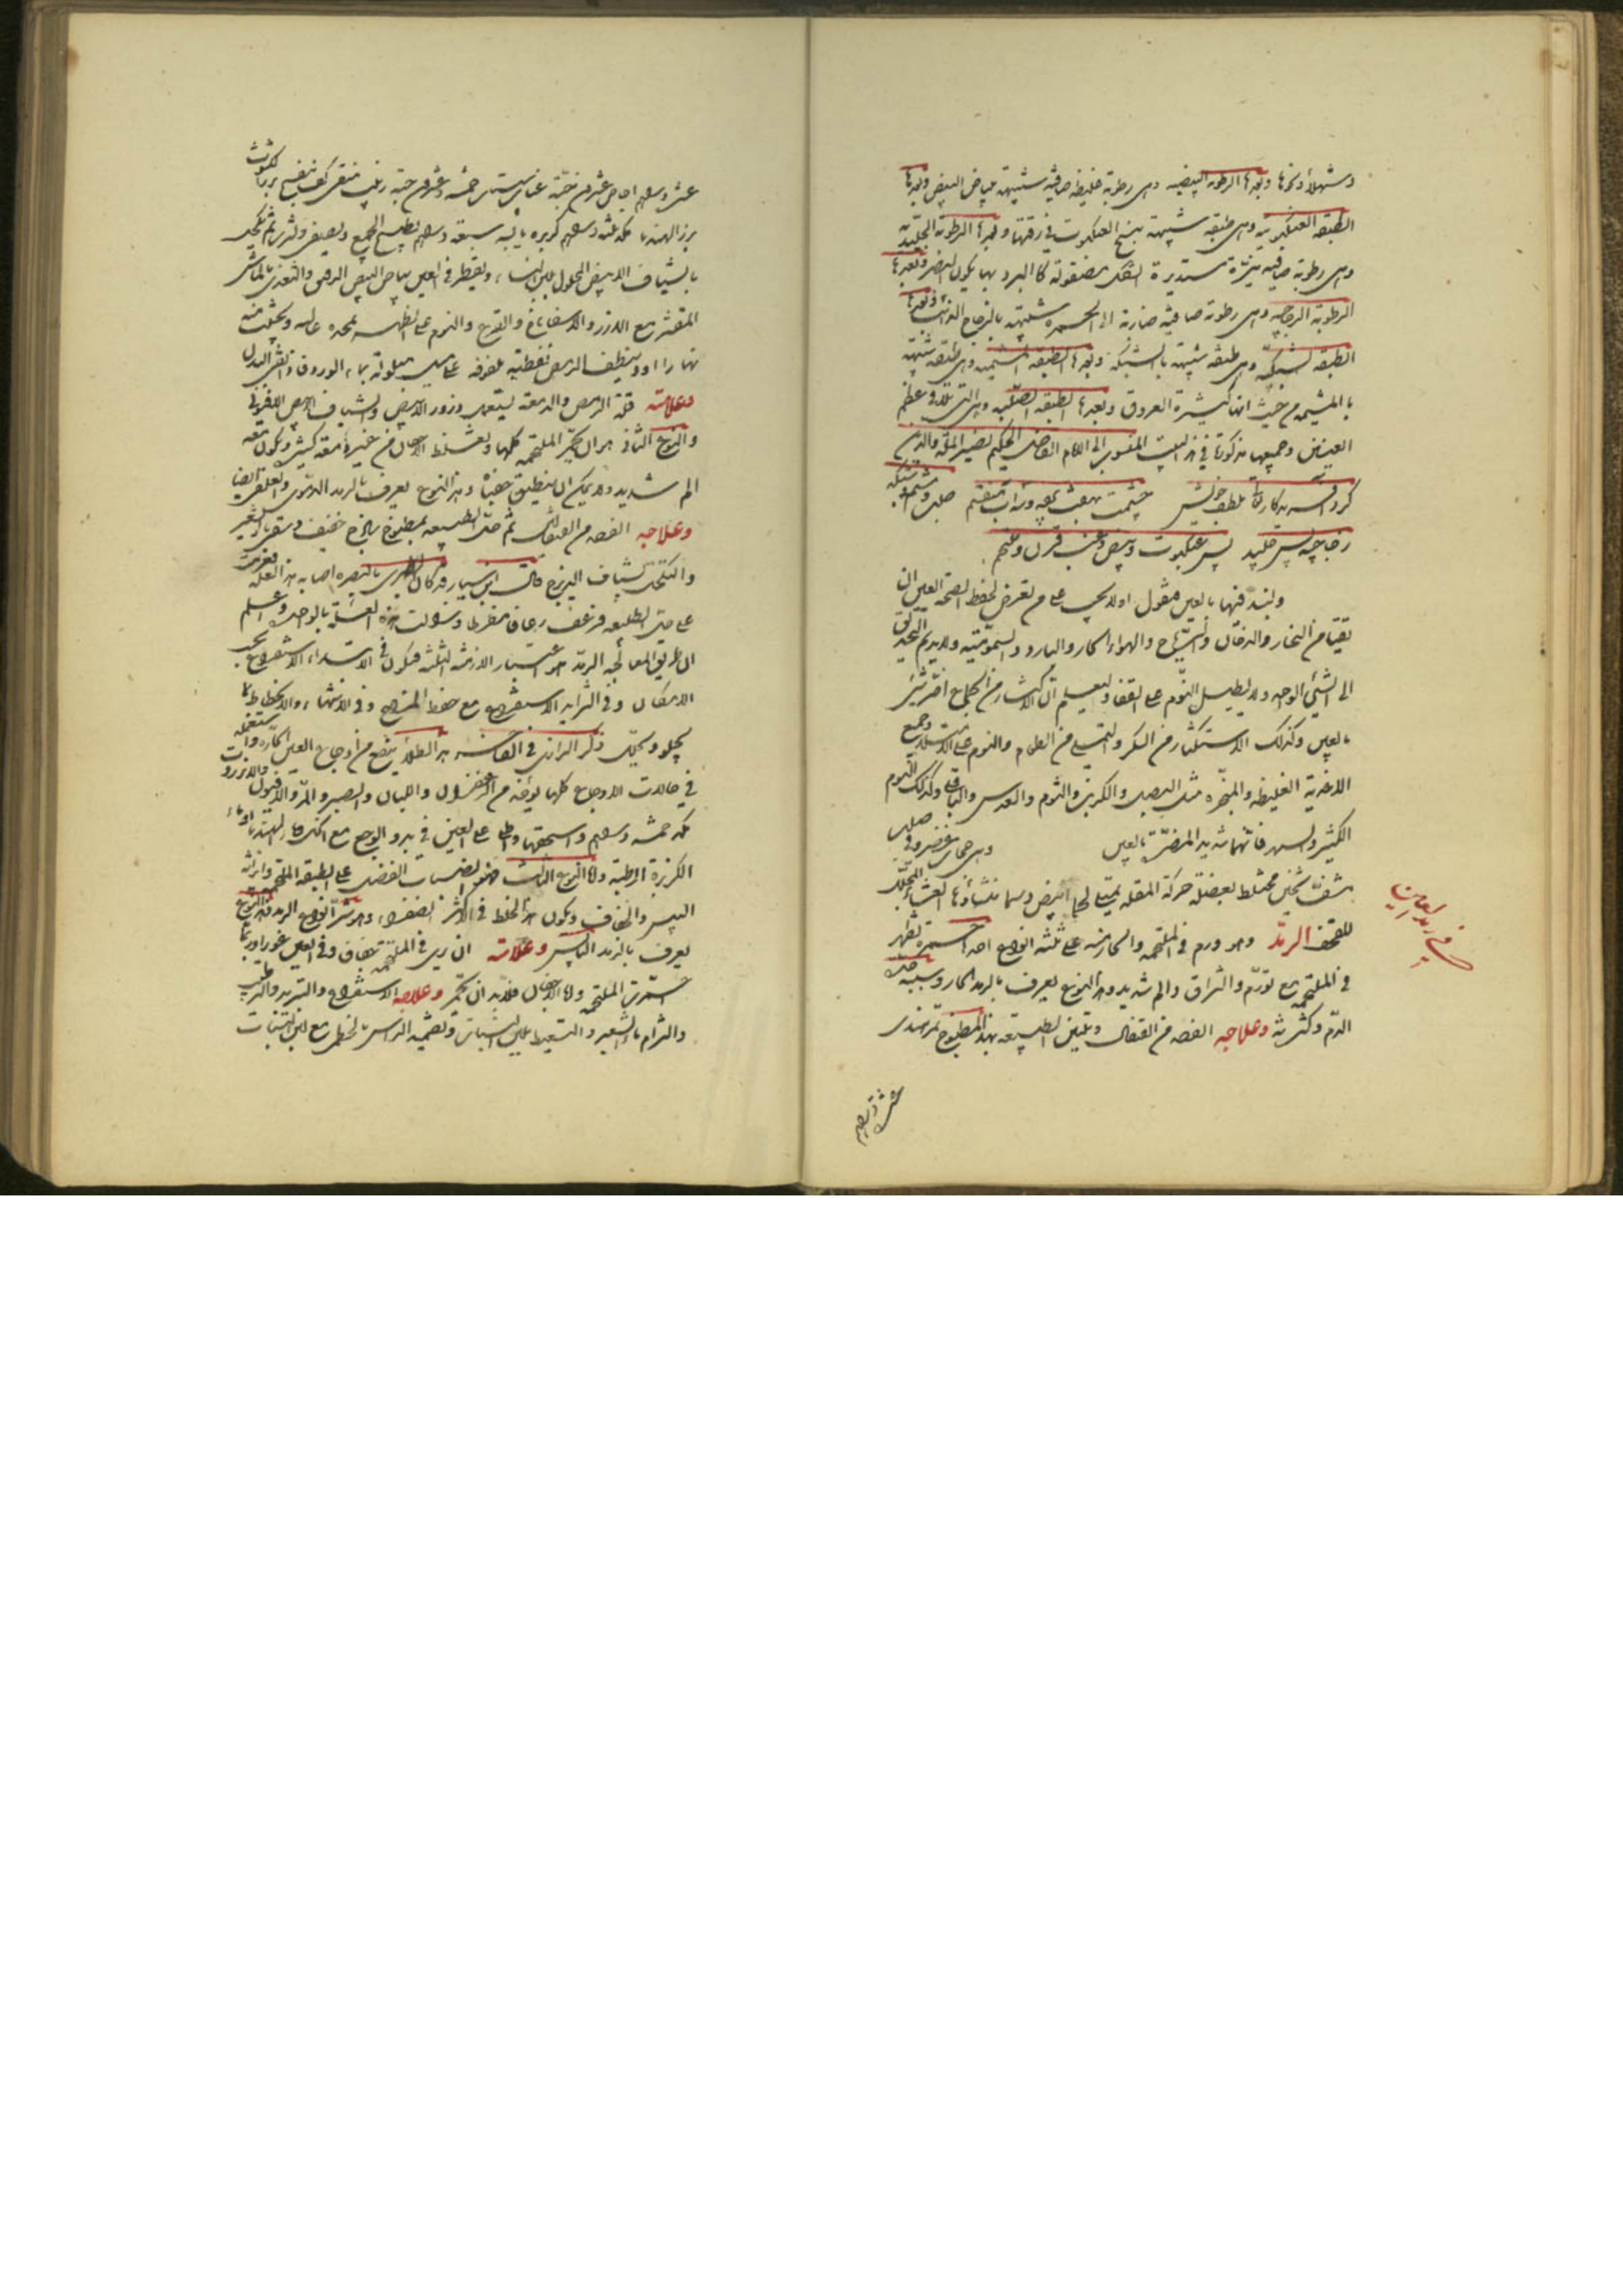 وشهلا وغيرها وبعدها الرطوبة البيضيه وهى رطوبة غليظه صافيه شبيهة ببياض البيض وبعدها
الطبقه العنكبوتيه وهى طبقه شبيهة بنسج العنكبوت في رقتها وبعدها الرطوبة الجليديه
وهى رطوبة صافيه نيّرة مستديرة الشكل مصقولة كالبرد بها يكون البصر وبعدها
الرطوبة الزجاجيه وهى رطوبة صافيه ضاربة الى الحمره شبيهة بالزجاج الذائب وبعدها
الطبقه الشبكيّه وهى طبقه شبيهة بالشبكه وبعدها الطبقه المشيميه وهى طبقه شبيهة
بالمشيمه من حيث انها كثيرة العروق وبعدها الطبقه الصلبيه وهى التى تلاقى عظم
العينين وجميعها مذكورة في هذا البيت المنسوب الى الامام القاضى الحكيم نصير الملة والدين
كرد آفريدكار تعالى بلطف خويش چشمت بهفت پرده وسه آب منقسم صلب ومشيمه شبكه
زجاجيه پس جليد پس عنكبوت وبيض وعنب قرن وملتحم
ولنبد فيها بالعين فنقول اولا يجب على من تعرض لحفظ صحة العين ان
يقيها من البخار والدخان والرياح والهواء الحار والبارد والسموميّه ولا يديم التحديق
الى الشئ الواحد ولا يطيل النّوم على القفا وليعلم ان الاكثار من الجماع اضر شئ
بالعين وكذلك الاستكثار من السكر والتملى من الطعام والنوم على الامتلاء وجميع
الاغذية الغليظه والمبخّره مثل البصل والكراث والثوم والعدس والباقلى وكذلك النّوم
الكثير والسهر فانهما شديد المضرّة بالعين وهى حجاب غضروفى صلب
شفّ ثخين مختلط بعضلة حركة المقله يمتلى لحما ابيض دسما منشأوها الغشاء المجلّل
للقحف الرمد وهو ورم في الملتحمه والحادث على ثلثه انواع احدها حمره تظهر
في الملتحمه مع تورّم والتزاق والم شديد وهذا النوع يعرف بالرمد الحار وسببه حدّة
الدّم وكثرته وعلاجه الفصد من القيفال وتليين الطبيعه بهذا المطبوخ تمرهندى
عشرة دراهم
في رمد العين
عشرة دراهم اجاص عشرون حبّة عناب سپستان خمسه وعشرون حبّه زبيب منقى كف بنفسج بزر الكشوث
بزر الهندبا مكد ثلثه دراهم كزبره يابسه سبعة دراهم يطبخ الجميع ويصفى ويشرب ثم يكحل
بالشياف الابيض المحلول بلبن النساء ويقطر في العين بياض البيض الرقيق والتغذى بالماش
المقشر مع الارز والاسفاناخ والقرع والنوم على الظهر بمخدة عاليه ويجتنب منه
نهارا وينظف الرمص بقطنة ملفوفه على ميل مبلولة بماء الورد وفى آخر البدل
وعلامته قلة الرمص والدمعه يستعمل ذرور الابيض والشياف الابيض الافيونى
والنوع الثانى هو ان يحمرّ الملتحمه كلها ويغلظ الاجفان من غير دمعة كثيره ويكون معه
الم شديد ولا يمكن ان ينطبق جفناه وهذا النوع يعرف بالرمد الدموى والغلغمونى ايضا
وعلاجه الفصد من القيفال ثم حل الطبيعه بمطبوخ بارد خفيف وسقى ماء الشعير
والتكحل بشياف اليزرج قال ابن سيار قد كان اكثرى بالبصره اصابه هذه العله فعزمت
على حل الطبيعه فرعف رعافا مفرطا وزالت هذه العلة بالواحده واعلم
ان طريق المعالجه الرمد هو اعتبار الازمنة الثلثه فيكون في الابتداء الاستفراغ بحسب
الامكان وفي التزايد الاستفراغ مع حفظ المزاج وفي الانتهاء والانحطاط بما
يجلو ويحلّل ذكر الرازى في الفاخر هذا الطلاء ينفع من اوجاع العين الحارّه وانا استعمله
في حالات الاوجاع كلها يؤخذ من الزعفران واللبان والصبر والمرّ والافيون والانزروت
مكد خمسه دراهم واسحقها واطل على العين في بدو الوجع مع الهندبا وماء
الكزبرة الرطبة واما النوع الثالث فهو انصباب الفضل على الطبقه الملتحمه وانزاله
اليبس والجفاف ويكون هذا الخلط في الاكثر الصفراء وهو شرّ انواع الرمد وهذا النوع
يعرف بالرمد اليابس وعلامته ان يرى في الملتحمه جفاف وفي العين غور وربما
احمرّت الملتحمه واما الاجفان فلابد ان تحمّر وعلاجه الاستفراغ والتبريد والترطيب
والتزام ماء الشعير والتسعيط بلبن النساء وتضميد الراس بالخطمى مع لبن البنات